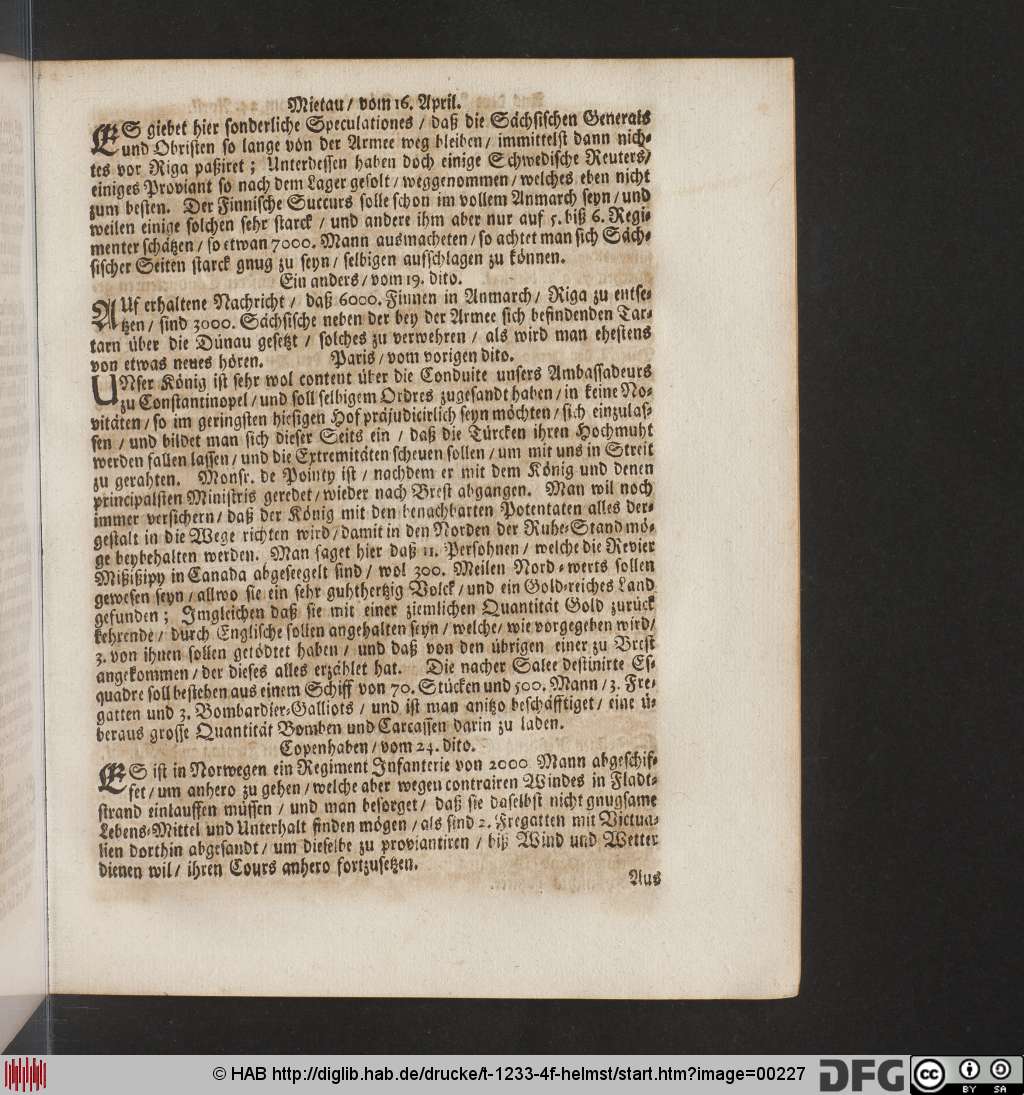 Mietau / vom 16. April.
ES giebet hier sonderliche Speculationes / daß die Sächsischen Generals
und Obristen so lange von der Armee weg bleiben / immittelst dann nich-
tes vor Riga paßiret ; Unterdessen haben doch einige Schwedische Reuters /
einiges Proviant so nach dem Lager gesolt / weggenommen / welches eben nicht
zum besten. Der Finnische Succurs solle schon im vollem Anmarch seyn / und
weilen einige solchen sehr starck / und andere ihm aber nur auf 5. biß 6. Regi-
menter schätzen / so etwan 7000. Mann ausmacheten / so achtet man sich Säch-
sischer Seiten starck gnug zu seyn / selbigen aufschlagen zu können.
Ein anders / vom 19. dito.
AUf erhaltene Nachricht / daß 6000. Finnen in Anmarch / Riga zu entse-
tzen / sind 3000. Sächsische neben der bey der Armee sich befindenden Tar-
tarn über die Dünau gesetzt / solches zu verwehren / als wird man ehestens
von etwas neues hören. Paris / vom vorigen dito.
UNser König ist sehr wol content über die Conduite unsers Ambassadeurs
zu Constantinopel / und soll selbigem Ordres zugesandt haben / in keine No-
vitäten / so im geringsten hiesigen Hof präjudicirlich seyn möchten / sich einzulas-
sen / und bildet man sich dieser Seits ein / daß die Türcken ihren Hochmuht
werden fallen lassen / und die Extremitäten scheuen sollen / um mit uns in Streit
zu gerahten. Monsr. de Pointy ist / nachdem er mit dem König und denen
principalsten Ministris geredet / wieder nach Brest abgangen. Man wil noch
immer versichern / daß der König mit den benachbarten Potentaten alles der-
gestalt in die Wege richten wird / damit in den Norden der Ruhe-Stand mö-
ge beybehalten werden. Man saget hier daß 11. Persohnen / welche die Revier
Mißißipy in Canada abgeseegelt sind / wol 300. Meilen Nord-werts sollen
gewesen seyn / allwo sie ein sehr guhthertzig Volck / und ein Gold-reiches Land
gefunden ; Imgleichen daß sie mit einer ziemlichen Quantität Gold zurück
kehrende / durch Englische sollen angehalten seyn / welche / wie vorgegeben wird /
3. von ihnen sollen getödtet haben / und daß von den übrigen einer zu Brest
angekommen / der dieses alles erzählet hat. Die nacher Salee destinirte Es-
quadre soll bestehen aus einem Schiff von 70. Stücken und 500. Mann / 3. Fre-
gatten und 3. Bombardier-Galliots / und ist man anitzo beschäfftiget / eine ü-
beraus grosse Quantität Bomben und Carcassen darin zu laden.
Copenhaben / vom 24. dito.
ES ist in Norwegen ein Regiment Infanterie von 2000 Mann abgeschif-
fet / um anhero zu gehen / welche aber wegen contrairen Windes in Fladt-
strand einlauffen müssen / und man besorget / daß sie daselbst nicht gnugsame
Lebens-Mittel und Unterhalt finden mögen / als sind 2. Fregatten mit Victua-
lien dorthin abgesandt / um dieselbe zu proviantiren / biß Wind und Wetter
dienen wil / ihren Cours anhero fortzusetzen.
Aus
© HAB http://diglib.hab.de/drucke/t-1233-4f-helmst/start.htm?image=00227
DFG
cc BY SA